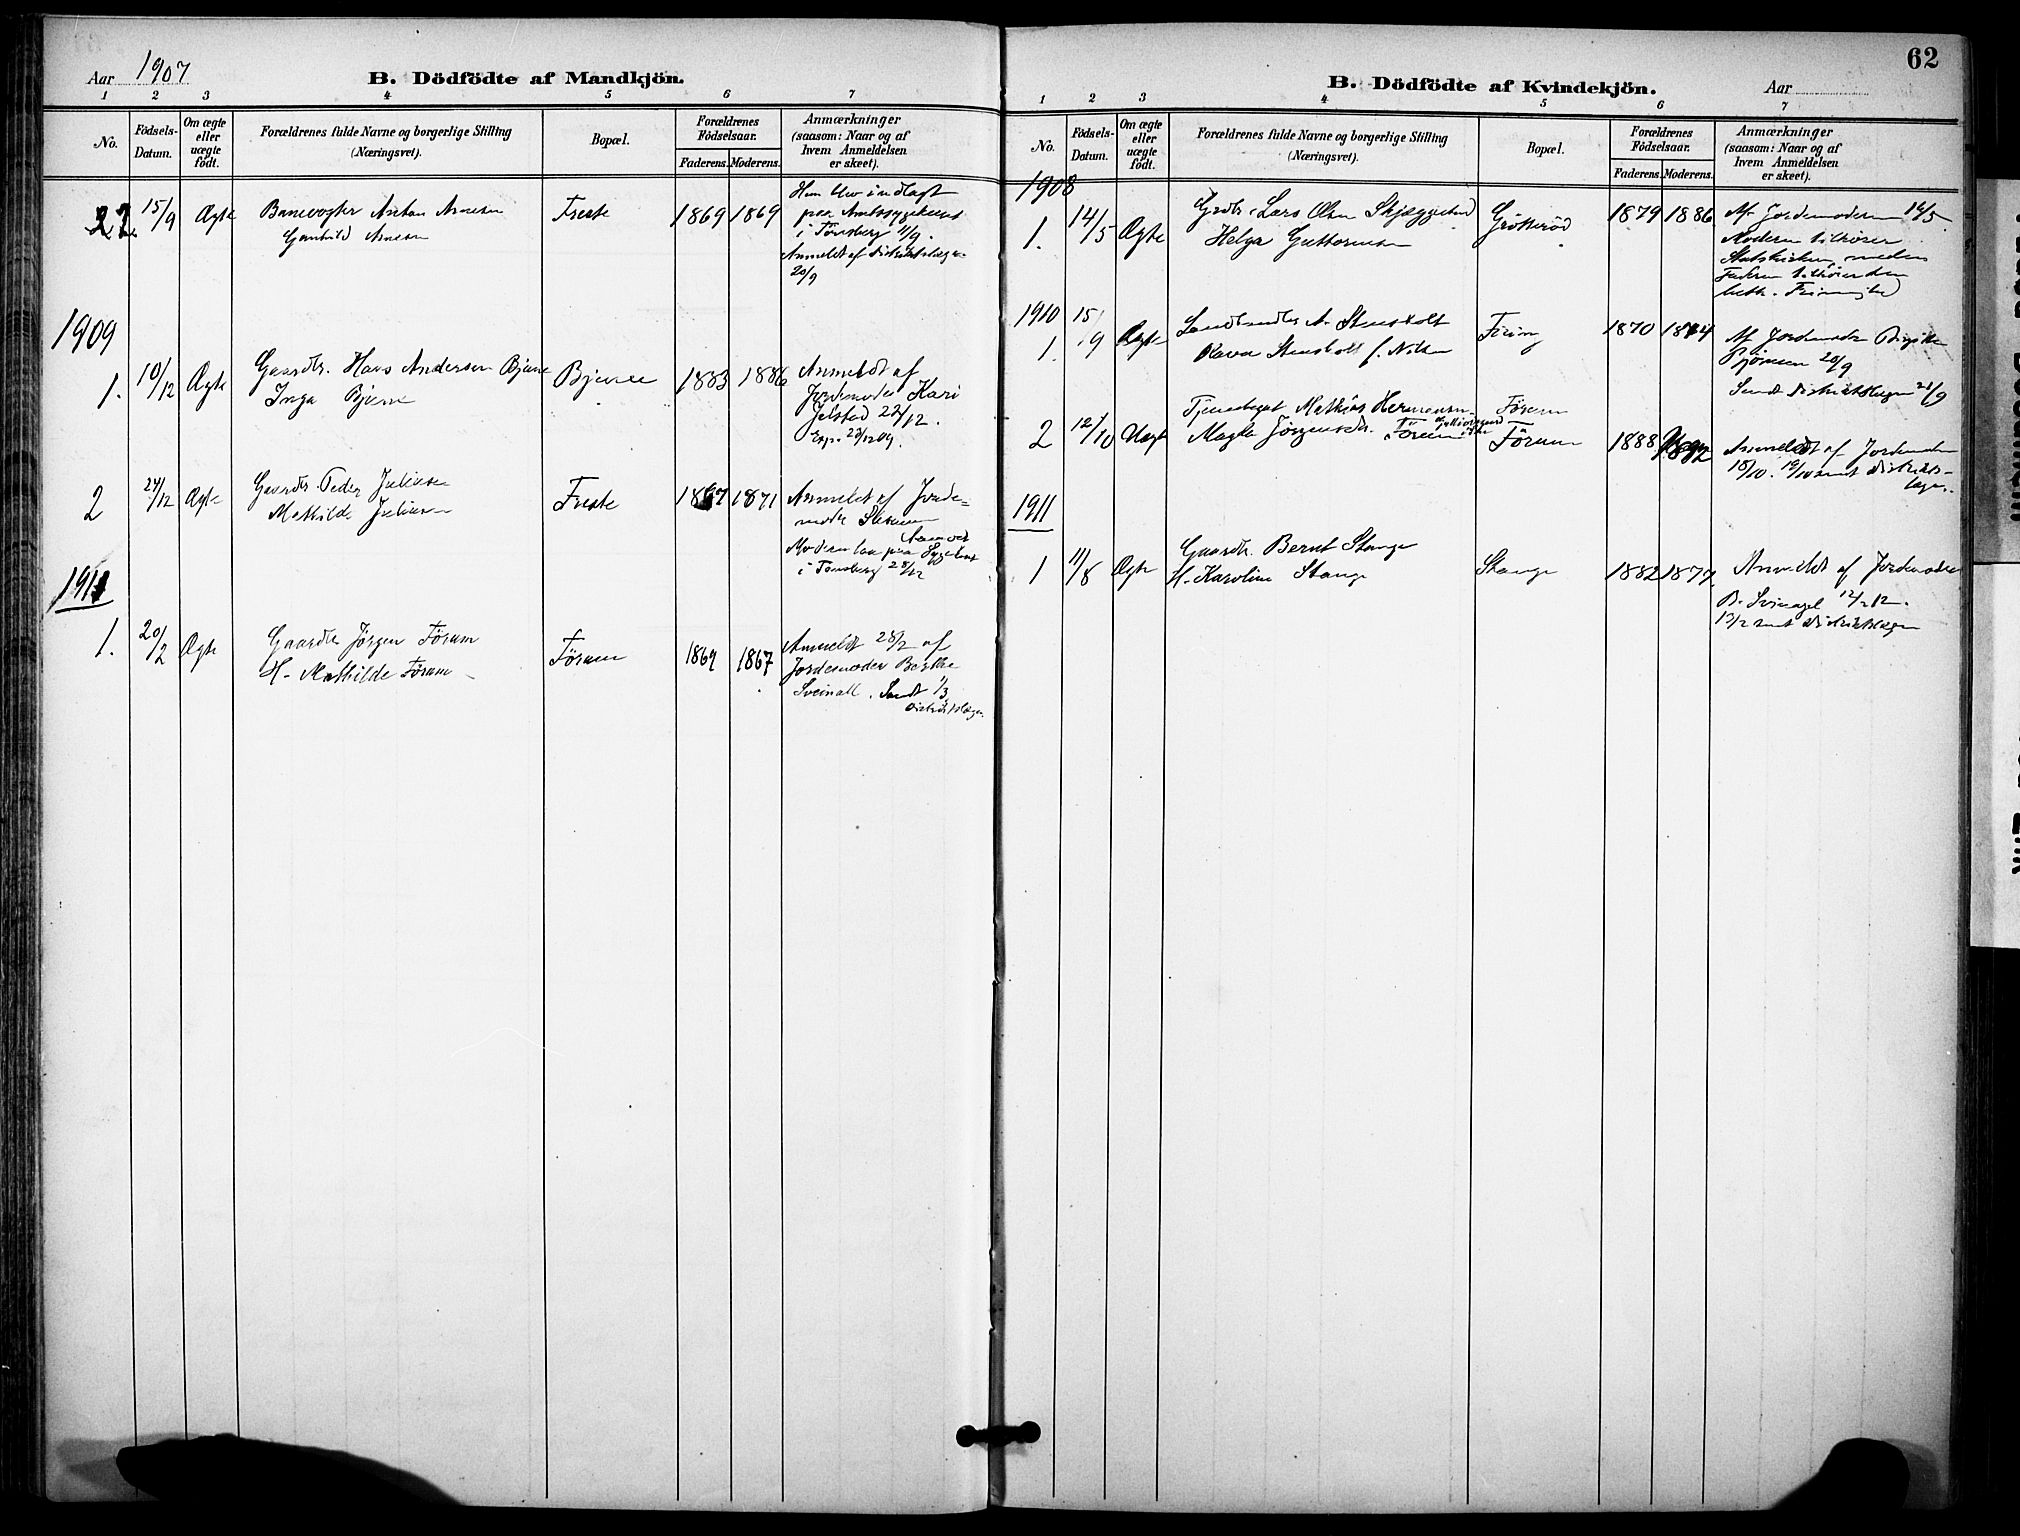 Aar 1907
B. Dödfödte af Mandkjön.
1 2 3 4 5 6 7
No.
Födsels-Datum.
Om ægte eller uægte födt.
Forældrenes fulde Navne og borgerlige Stilling
(Næringsvei).
Bopæl.
Forældrenes Födselsaar.
Faderens. Moderens.
Anmærkninger
(saasom: Naar og af
hvem Anmeldelsen
er skeet).
15/9 Ægte Banevogter Anton Arnesen Freste 1869 1869
Gunhild Arnesen
i Tönsberg 11/9.
Anmeldt af Distriktslægen
20/9
1909
1. 10/12 Ægte Gaardbr. Hans Andersen Bjerve Bjerve 1883 1886 Anmeldt af
Inga Bjerve
Jordemoder Kari
Jelstad 22/12.
Exp. 23/12 09.
2 27/12 Ægte Gaardbr. Peder Juliusen Freste 1871 Anmeldt af Jorde-
Mathilde Juliusen
moder
Moderen laa paa Sygehus
i Tönsberg 28/12
1911
1. 20/2 Ægte Gaardbr Jörgen Förum Förum 1867 Anmeldt 28/2 af
H. Mathilde Förum
Jordemoder Berthe
Sveinall. Sendt 1/3
Distriktslægen.
62
B. Dödfödte af Kvindekjön.
Aar
1 2 3 4 5 6 7
No.
Födsels-Datum.
Om ægte eller uægte födt.
Forældrenes fulde Navne og borgerlige Stilling
(Næringsvei).
Bopæl.
Forældrenes Födselsaar.
Faderens. Moderens.
Anmærkninger
(saasom: Naar og af
hvem Anmeldelsen
er skeet).
1908
1. 14/5 Ægte Grdbr. Lars Olsen Skjæggestad Gröteröd 1879 1886 Af Jordemoderen 16/5.
Helga Guttormsen
Moderen tilhörer
Statskirken, medens
Faderen tilhörer den
luth. Frimenighed
1910
1. 15/9 Ægte Landhandler A. Stensholt 1870 Af Jordemoder Birgitte
Stensholt f. Nilsen
Björnsen 20/9
Sendt Distriktslægen 21/9
2 12/10 Uægte Tjenestegut Mathias Hermansen Förum 1888 1892 Anmeldt af Jordemoder
Magla Jörgensdtr. Förum Förum
18/10. 19/10 sendt Distrikts-
lægen.
1911
1 11/8 Ægte Gaardbr. Bernt Stange Stange 1882 1877 Anmeldt af Jordemoder
H. Karoline Stange
B. Svinagel 12/2 12.
13/2 sendt Distriktslægen